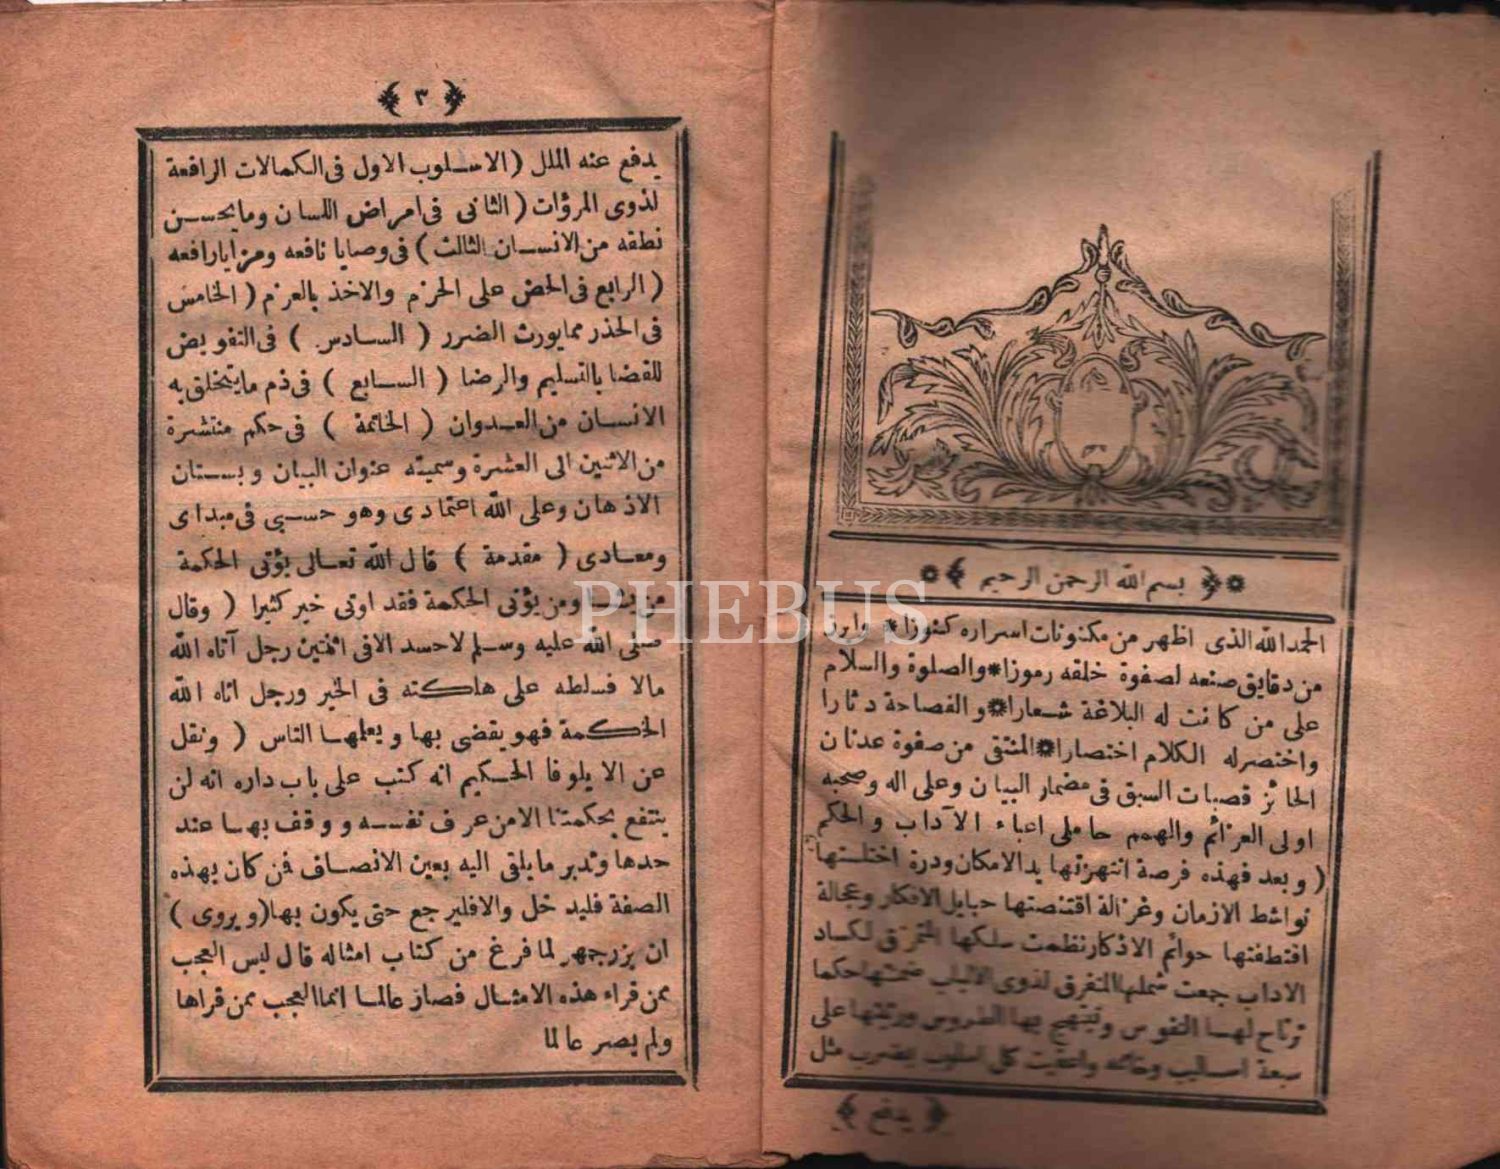 بسم الله الرحمن الرحيم
الحمد الله الذى اظهر من مكنونات اسراره كنوزا * وابرز
من دقايق صنعه لصفوة خلقه رموزا * والصلوة والسلام
على من كانت له البلاغة شعارا * والفصاحة دثارا
واختصر له الكلام اختصارا * المنتقى من صفوة عدنان
الحائز قصبات السبق فى مضمار البيان وعلى اله وصحبه
اولى العزائم والهمم حاملى اعباء الآداب والحكم
( وبعد فهذه فرصة انتهزتها يد الامكان ودرة اختلستها
نواشط الازمان وغزالة اقتنصتها حبايل الافكار وعجالة
اقتطفتها حوائم الاذكار نظمت سلكها المخترق لكساد
الاداب جمعت شملها المتفرق لذوى الالباب ضمنتها حكما
ترتاح لها النفوس وتبتهج بها الطروس ورتبتها على
سبعة اساليب وخاتمه واعقبت كل اسلوب بضرب مثل
يدفع
٣
يدفع عنه الملل ( الاسلوب الاول فى الكمالات الرافعة
لذوى المروآت ( الثانى فى امراض اللسان وما يحسن
نطقه من الانسان الثالث ) فى وصايا نافعه ومزايا رافعه
( الرابع فى الحض على الحزم والاخذ بالعزم ( الخامس
فى الحذر مما يورث الضرر ( السادس ) فى التفويض
للقضا بالتسليم والرضا ( السابع ) فى ذم ما يتخلق به
الانسان من العدوان ( الخاتمة ) فى حكم منتشرة
من الاثنين الى العشرة وسميته عنوان البيان وبستان
الاذهان وعلى الله اعتمادى وهو حسبى فى مبداى
ومعادى ( مقدمة ) قال الله تعالى يؤتى الحكمة
من يشاء ومن يؤتى الحكمة فقد اوتى خير كثيرا ( وقال
صلى الله عليه وسلم لا حسد الا فى اثنتين رجل آتاه الله
مالا فسلطه على هلكته فى الخير ورجل اتاه الله
الحكمة فهو يقضى بها ويعلمها الناس ( ونقل
عن الايلوفا الحكيم انه كتب على باب داره انه لن
ينتفع بحكمتنا الا من عرف نفسه ووقف بها عند
حدها وتدبر ما يلقى اليه بعين الانصاف فمن كان بهذه
الصفة فليدخل والا فليرجع حتى يكون بها ( ويروى )
ان بزرجمهر لما فرغ من كتاب امثاله قال ليس العجب
ممن قراء هذه الامثال فصار عالما انما العجب ممن قراها
ولم يصر عالما
PHEBUS